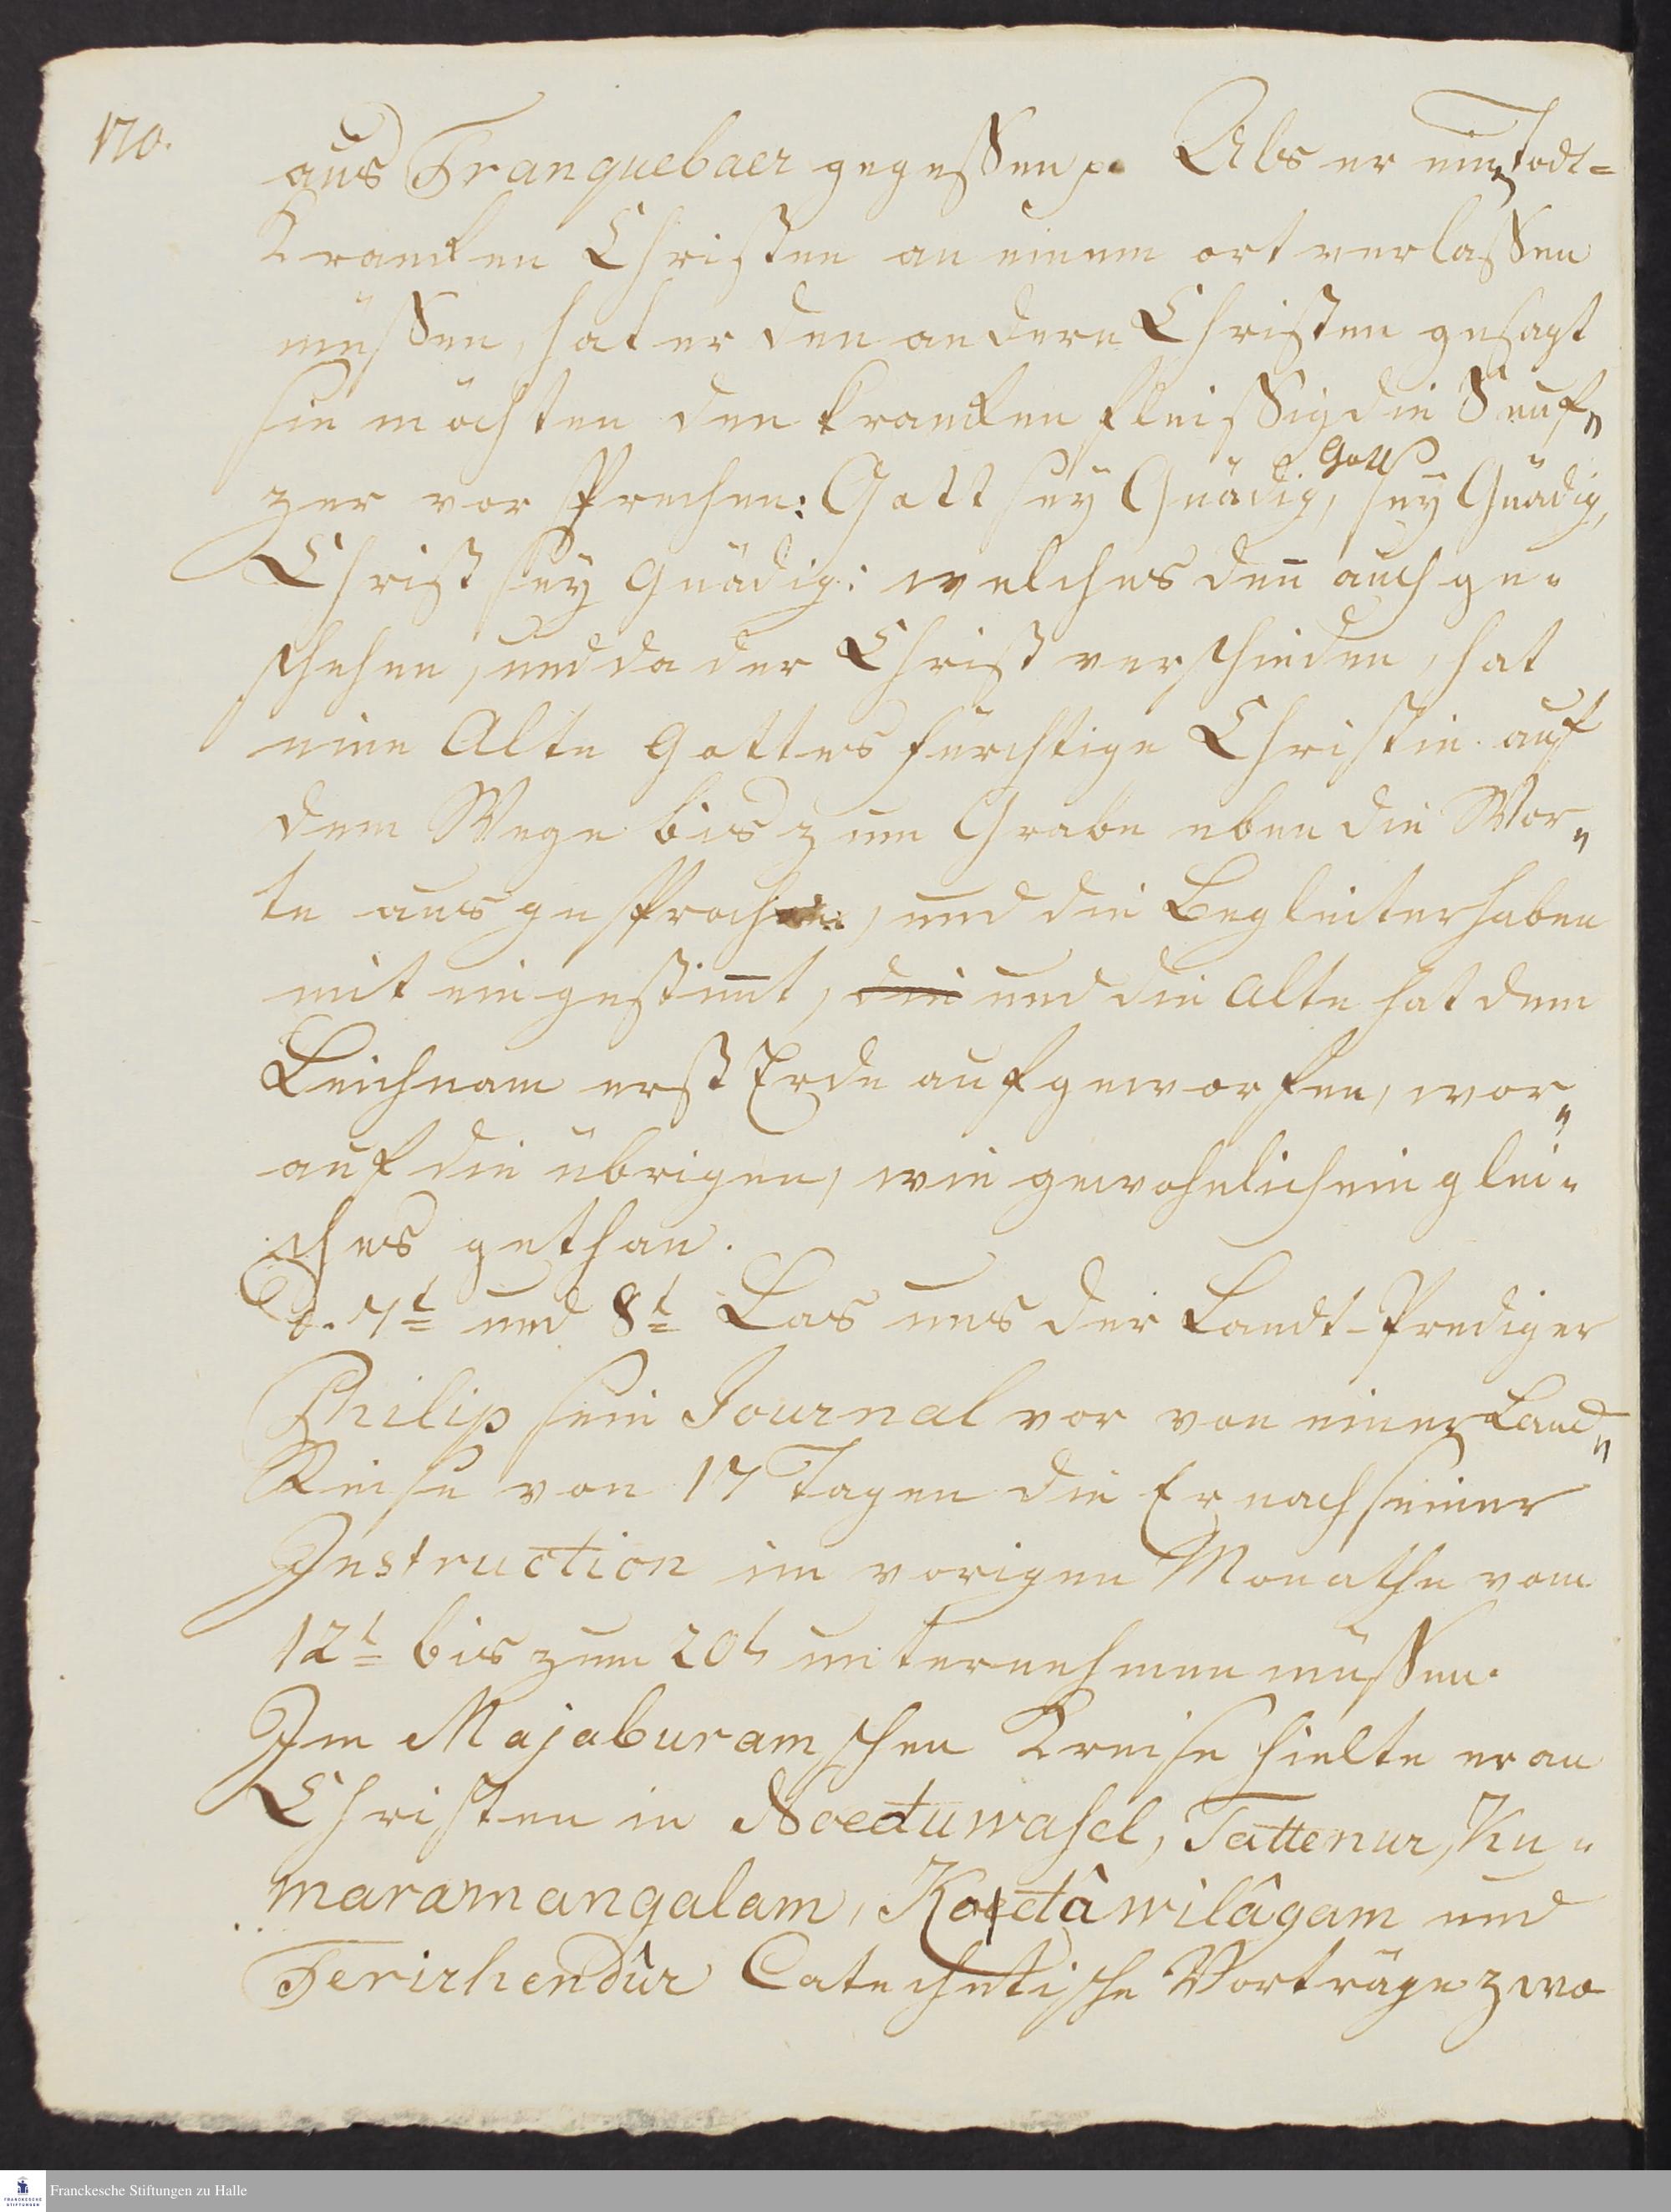 170.
aus Tranquebaer gegessen p. Als er einen Todt=
Krancken Christen an einem ort verlassen
müssen, hat er den andern Christen gesagt
sie möchten den krancken fleissig die Seuf„
zer vor sprechen: Gott sey Gnädig, Gott sey Gnädig,
Christ sey gnädig: welches den̄ auch ge„
schehen, und da der Christ verschieden, hat
eine Alte Gottesfürchtige Christin auf
dem Wege bis zum Grabe eben die Wor„
te ausgesprochen, und die Begleiter haben
mit eingestim̄t, die und die Alte hat dem
Leichnam erst Erde aufgeworfen, wor„
auf die übrigen, wie gewohnlich ein glei„
ches gethan.
D. 7t und 8t Las uns der Landt-Prediger
Philip sein Journal vor von einer Land„
Reise von 17 Tagen die Er nach seiner
Instruction im vorigen Monathe vom
12t bis zum 20t unternehmen müssen.
Im Majaburamschen Kreise hielte er an
Christen in Noeduwasel, Tattenur, Ku„
maramangalam, Koedâwilâgam und
Terirhendûr Catechetische Vorträge zwo
Franckesche Stiftungen zu Halle